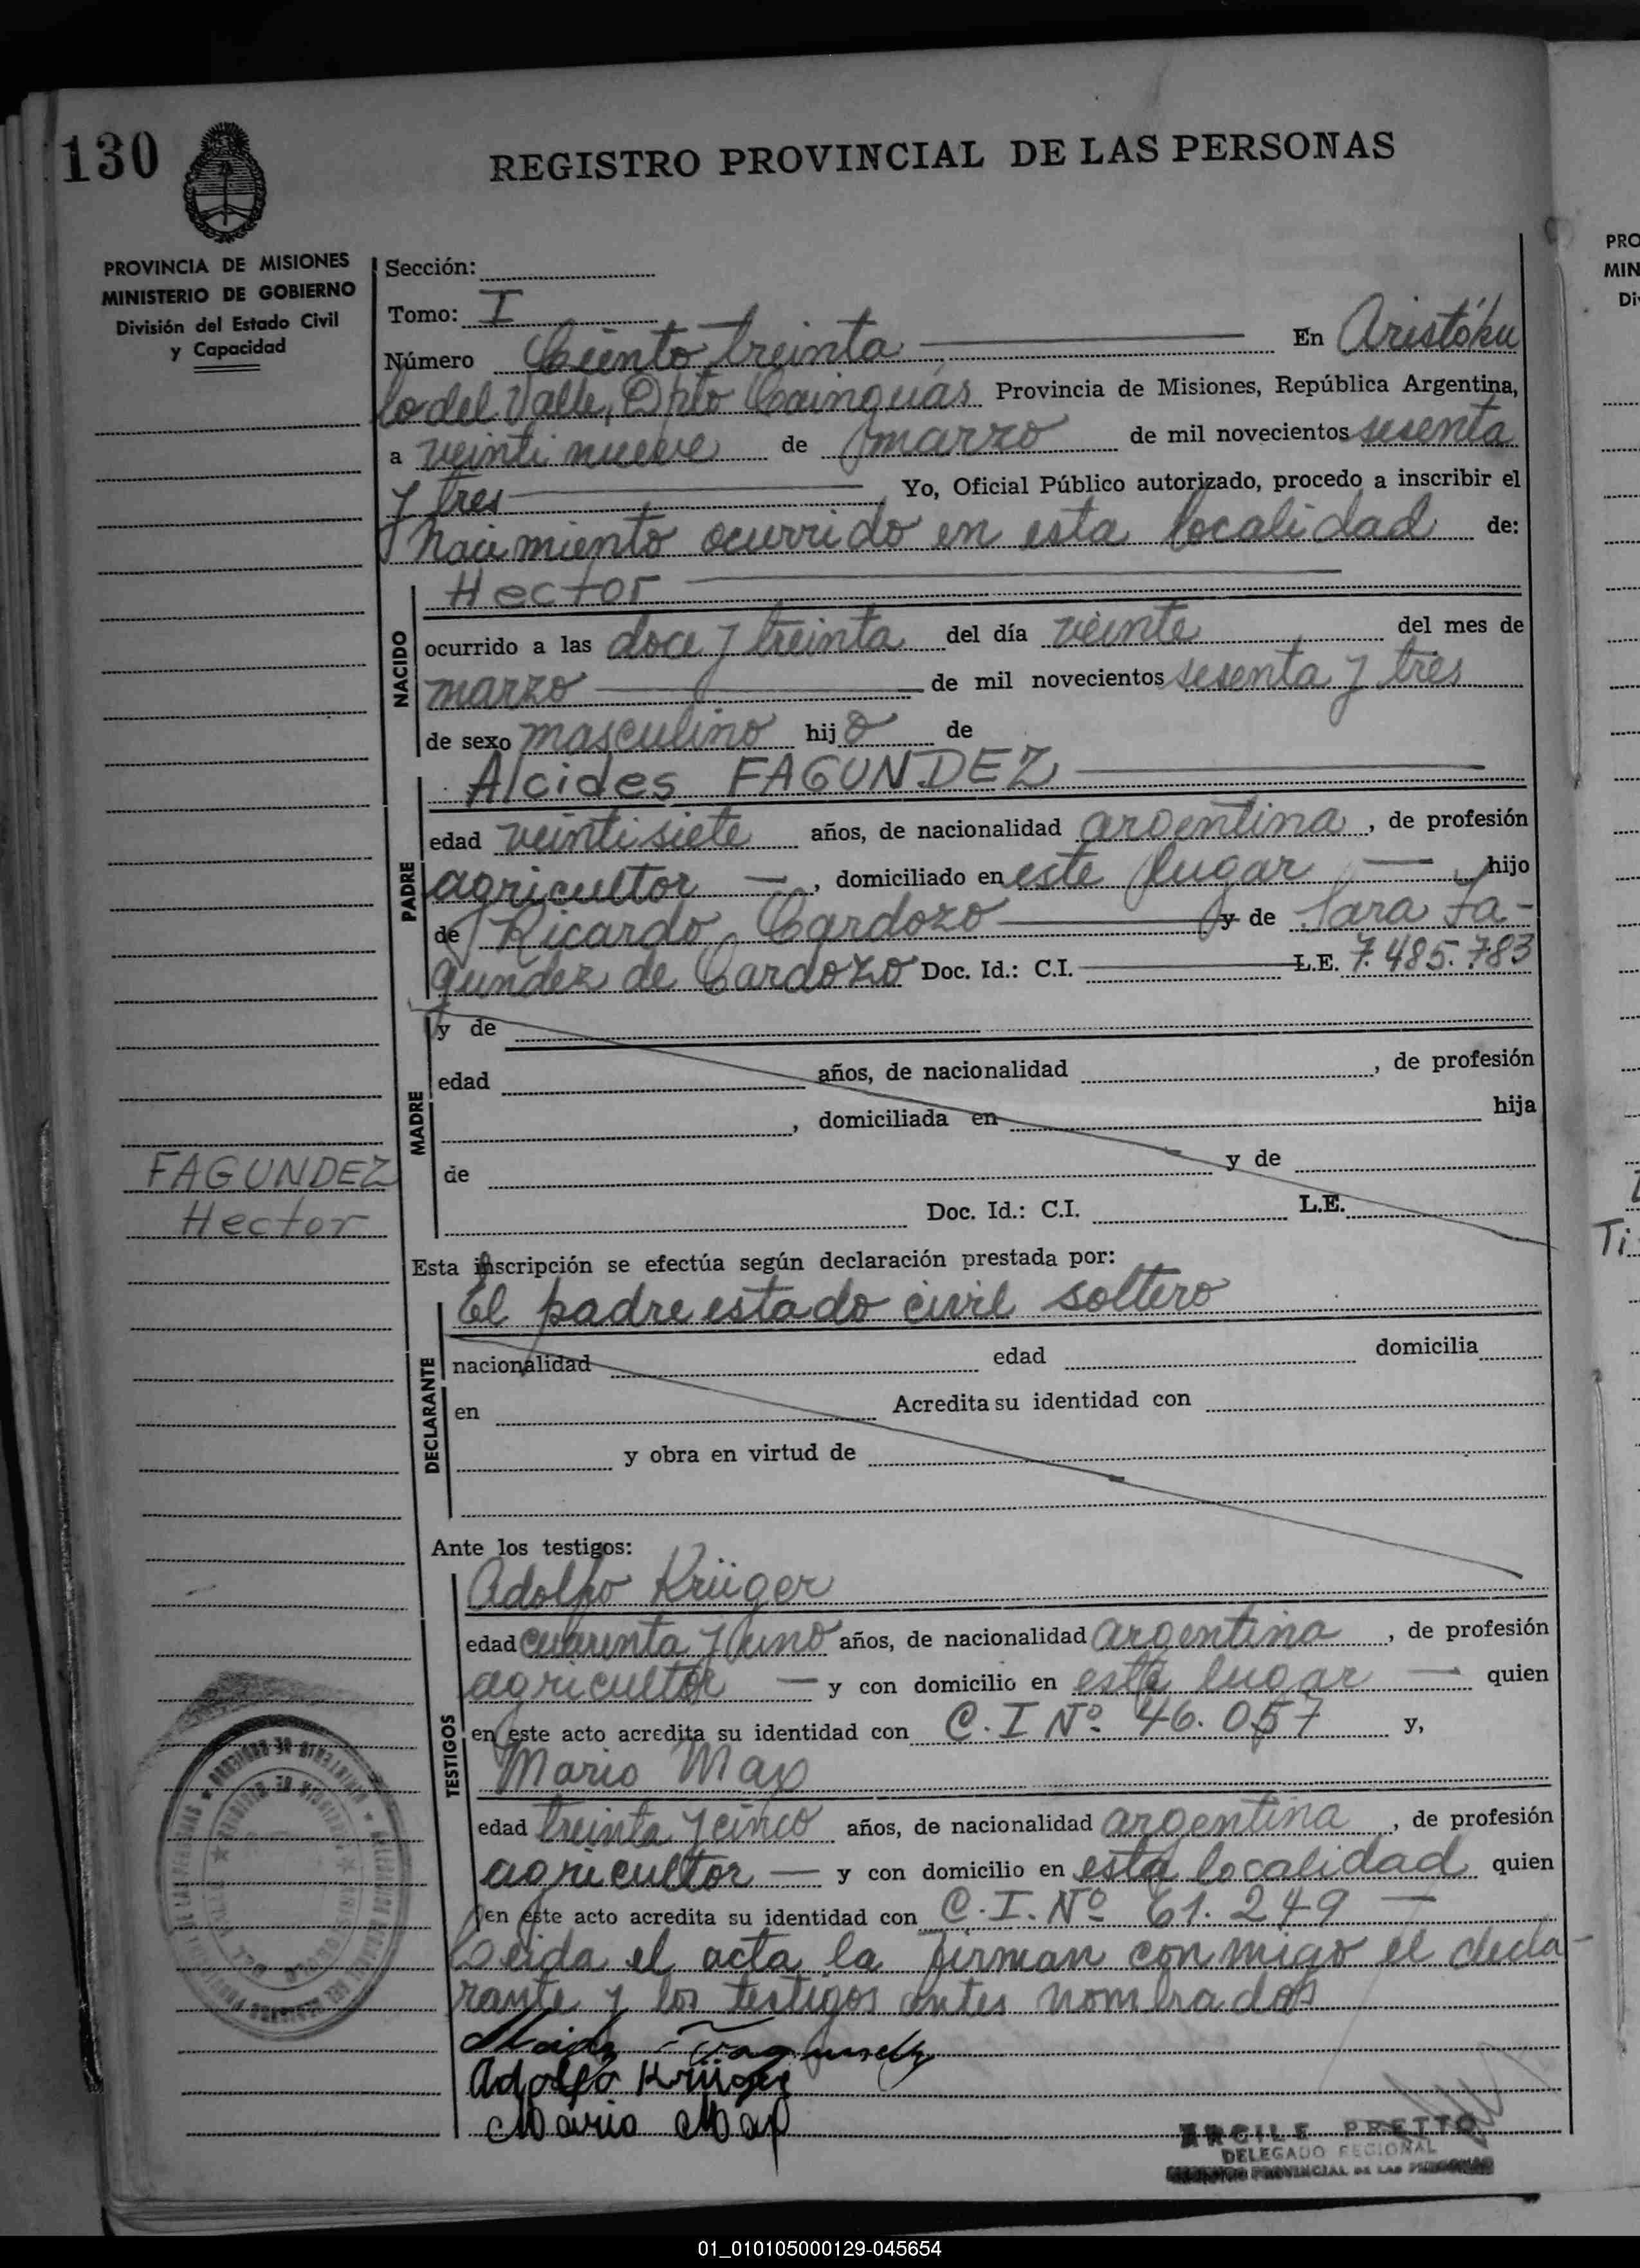 130
REGISTRO PROVINCIAL DE LAS PERSONAS
PROVINCIA DE MISIONES
MINISTERIO DE GOBIERNO
División del Estado Civil
y Capacidad
Sección:
Tomo: I
Número Ciento treinta En Aristóbu
lo del Valle, Dpto Cainguás Provincia de Misiones, República Argentina,
a veinti nueve de marzo de mil novecientos sesenta
y tres Yo, Oficial Público autorizado, procedo a inscribir el
nacimiento ocurrido en esta localidad de:
NACIDO
Hector
ocurrido a las doce y treinta del día veinte del mes de
marzo de mil novecientos sesenta y tres
de sexo masculino hijo de
PADRE
Alcides FAGUNDEZ
edad veintisiete años, de nacionalidad argentina, de profesión
agricultor —, domiciliado en este lugar — hijo
de Ricardo Cardozo y de Sara Fa-
gundez de Cardozo Doc. Id.: C.I. L.E. 7.485.783
MADRE
y de
edad años, de nacionalidad , de profesión
, domiciliada en hija
de y de
Doc. Id.: C.I. L.E.
FAGUNDEZ
Hector
Esta inscripción se efectúa según declaración prestada por:
DECLARANTE
El padre estado civil soltero
nacionalidad edad domicilia
en Acredita su identidad con
y obra en virtud de
Ante los testigos:
TESTIGOS
Adolfo Krüger
edad cuarenta y uno años, de nacionalidad argentina, de profesión
agricultor — y con domicilio en este lugar — quien
en este acto acredita su identidad con C.I Nº 46.057 y,
Mario Map
edad treinta y cinco años, de nacionalidad argentina, de profesión
agricultor — y con domicilio en esta localidad quien
en este acto acredita su identidad con C.I. Nº 61.249 —
Leida el acta la firman conmigo el decla-
rante y los testigos antes nombrados
Adolfo Krüger
Mario Map
ARCILE PRETTO
DELEGADO REGIONAL
PROVINCIAL DE LAS PERSONAS
PRO
MIN
Di
Ti
01_010105000129-045654